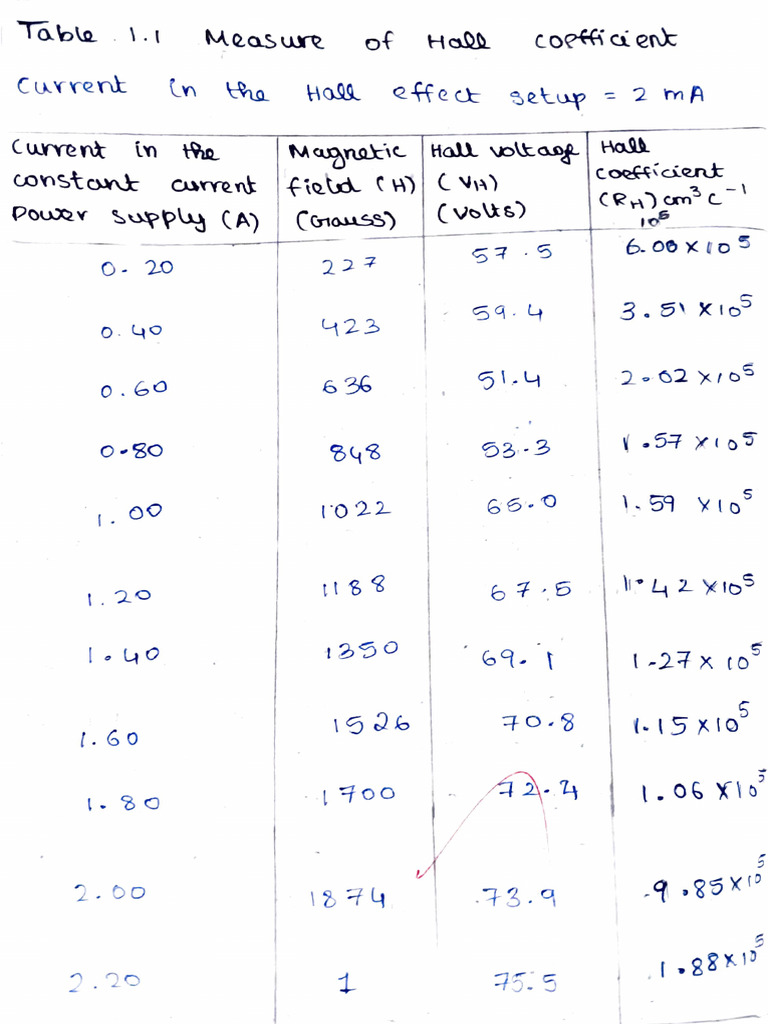 Table 1.1 Measure of Hall coefficient
Current in the Hall effect setup = 2 mA
Current in the constant current power supply (A) | Magnetic field (H) (Gauss) | Hall voltage (VH) (Volts) | Hall coefficient (RH) cm³ C⁻¹ 10⁵
0.20 | 227 | 57.5 | 6.00 × 10⁵
0.40 | 423 | 59.4 | 3.51 × 10⁵
0.60 | 636 | 51.4 | 2.02 × 10⁵
0.80 | 848 | 53.3 | 1.57 × 10⁵
1.00 | 1022 | 65.0 | 1.59 × 10⁵
1.20 | 1188 | 67.5 | 1.42 × 10⁵
1.40 | 1350 | 69.1 | 1.27 × 10⁵
1.60 | 1526 | 70.8 | 1.15 × 10⁵
1.80 | 1700 | 72.4 | 1.06 × 10⁵
2.00 | 1874 | 73.9 | 9.85 × 10⁵
2.20 | 1 | 75.5 | 1.88 × 10⁵